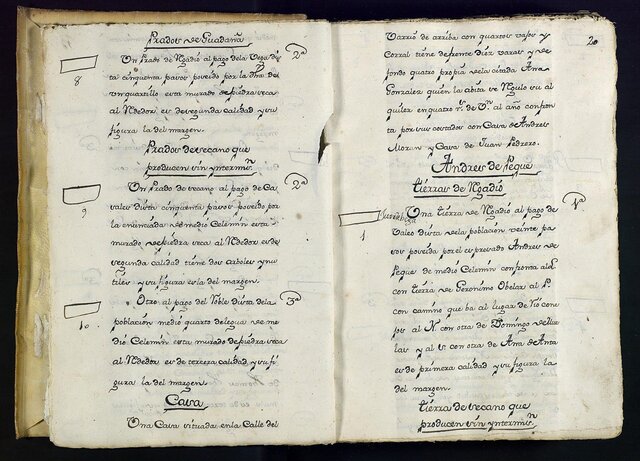 Prados de Guadaña
Un Prado de Rgadío al pago dela Vega dis
ta cinquenta pasos poseido por la dha. de
un quartillo esta murado de piedra seca
al Rdedor es de segunda calidad y su
figura la del margen.
8
2ª
Prados de secano que
producen sin yntermisn
Un Prado de secano al pago de Ca
vales dista cinquenta pasos poseido por
la enunciada de medio Celemin esta
murado de piedra seca al Rdedor es de
segunda calidad tiene dos arboles ynu
tiles y su figura es la del margen.
9
2ª
Otro al pago del Roble dista dela
población medio quarto de legua de me
dio Celemin esta murado de piedra seca
al Rdedor es de tercera calidad y su fi
gura la del margen.
10
3ª
Casa
Una Casa situada en la Calle del
20
Varrio de arriba con quartos vajos y
Corral tiene de frente diez varas y de
fondo quatro propia de la citada Ana
Gonzalez quien la abita se Rgulo su al
quiler en quatro rs. de Vn. al año confron
ta por sus costados con Casa de Andres
Moran y Casa de Juan Pedrero.
Andres de Peque
tierras de Rgadío
Una tierra de Rgadío al pago de
Vales dista de la población veinte pa
sos poseida por el expresado Andres de
Peque de medio Celemin confronta al L
con tierra de Geronimo Obelar al P
con camino que ba al lugar de Rio cone
jos al N con otra de Domingo de
lar y al S con otra de Ana de Anta
es de primera calidad y su figura la
del margen.
1
1ª
tierra de secano que
producen sin yntermisn